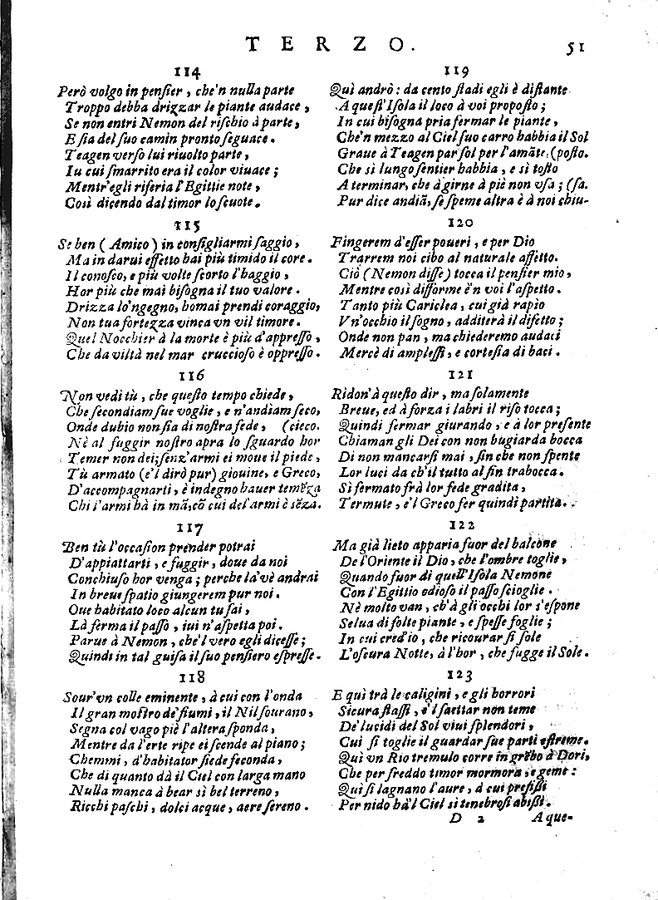 TERZO. 51
114
Però volgo in pensier, che'n nulla parte
Troppo debba drizzar le piante audace,
Se non entri Nemon del rischio à parte,
E sia del suo camin pronto seguace.
Teagen verso lui riuolto parte,
In cui smarrito era il color viuace;
Mentr'egli riferia l'Egittie note,
Così dicendo dal timor lo scuote.
115
Se ben (Amico) in consigliarmi saggio,
Ma in darui effetto hai più timido il core.
Il conosco, e più volte scorto l'haggio,
Hor più che mai bisogna il tuo valore.
Drizza lo'ngegno, homai prendi coraggio,
Non tua fortezza vinca vn vil timore.
Quel Nocchier à la morte è più d'appresso,
Che da viltà nel mar cruccioso è oppresso.
116
Non vedi tù, che questo tempo chiede,
Che secondiam sue voglie, e n'andiam seco,
Onde dubio non sia di nostra fede, (cieco.
Nè al fuggir nostro apra lo sguardo hor
Temer non dei; senz'armi ei moue il piede,
Tù armato (e'l dirò pur) giouine, e Greco,
D'accompagnarti, è indegno hauer temēza
Chi l'armi hà in mā, cō cui del'armi è sēza.
117
Ben tù l'occasion prender potrai
D'appiattarti, e fuggir, doue da noi
Conchiuso hor venga; perche la'vè andrai
In breue spatio giungerem pur noi.
Oue habitato loco alcun tu sai,
Là ferma il passo, iui n'aspetta poi.
Parue à Nemon, che'l vero egli dicesse;
Quindi in tal guisa il suo pensiero espresse.
118
Sour'vn colle eminente, à cui con l'onda
Il gran mostro de'fiumi, il Nil sourano,
Segna col vago piè l'altera sponda,
Mentre da l'erte ripe ei scende al piano;
Chemmi, d'habitator siede seconda,
Che di quanto dà il Ciel con larga mano
Nulla manca à bear sì bel terreno,
Ricchi paschi, dolci acque, aere sereno.
119
Quì andrò: da cento stadi egli è distante
A quest'Isola il loco à voi proposto;
In cui bisogna pria fermar le piante,
Che'n mezzo al Ciel suo carro habbia il Sol
Graue à Teagen par sol per l'amāte (posto.
Che sì lungo sentier habbia, e sì tosto
A terminar, che à girne à piè non vsa; (sa.
Pur dice andiā, se speme altra è à noi chiu-
120
Fingerem d'esser poueri, e per Dio
Trarrem noi cibo al naturale affitto.
Ciò (Nemon disse) tocca il pensier mio,
Mentre così difforme è'n voi l'aspetto.
Tanto più Cariclea, cui già rapìo
Vn'occhio il sogno, additerà il difetto;
Onde non pan, ma chiederemo audaci
Mercè di amplessi, e cortesia di baci.
121
Ridon'à questo dir, ma solamente
Breue, ed à forza i labri il riso tocca;
Quindi fermar giurando, e à lor presente
Chiaman gli Dei con non bugiarda bocca
Di non mancarsi mai, fin che non spente
Lor luci da ch'il tutto al fin trabocca.
Sì fermato frà lor fede gradita,
Termute, e'l Greco fer quindi partita.
122
Ma già lieto apparia fuor del balcone
De l'Oriente il Dio, che l'ombre toglie,
Quando fuor di quell'Isola Nemone
Con l'Egittio odioso il passo scioglie.
Nè molto van, ch'à gli occhi lor s'espone
Selua di folte piante, e spesse foglie;
In cui cred'io, che ricourar si sole
L'oscura Notte, à l'hor, che fugge il Sole.
123
E quì trà le caligini, e gli horrori
Sicura stassi, e'l saettar non teme
De'lucidi del Sol viui splendori,
Cui si toglie il guardar sue parti estreme.
Quì vn Rio tremulo corre in grēbo à Dori,
Che per freddo timor mormora, e geme:
Quì si lagnano l'aure, à cui prefissi
Per nido hà'l Ciel sì tenebrosi abissi.
D 2 A que-